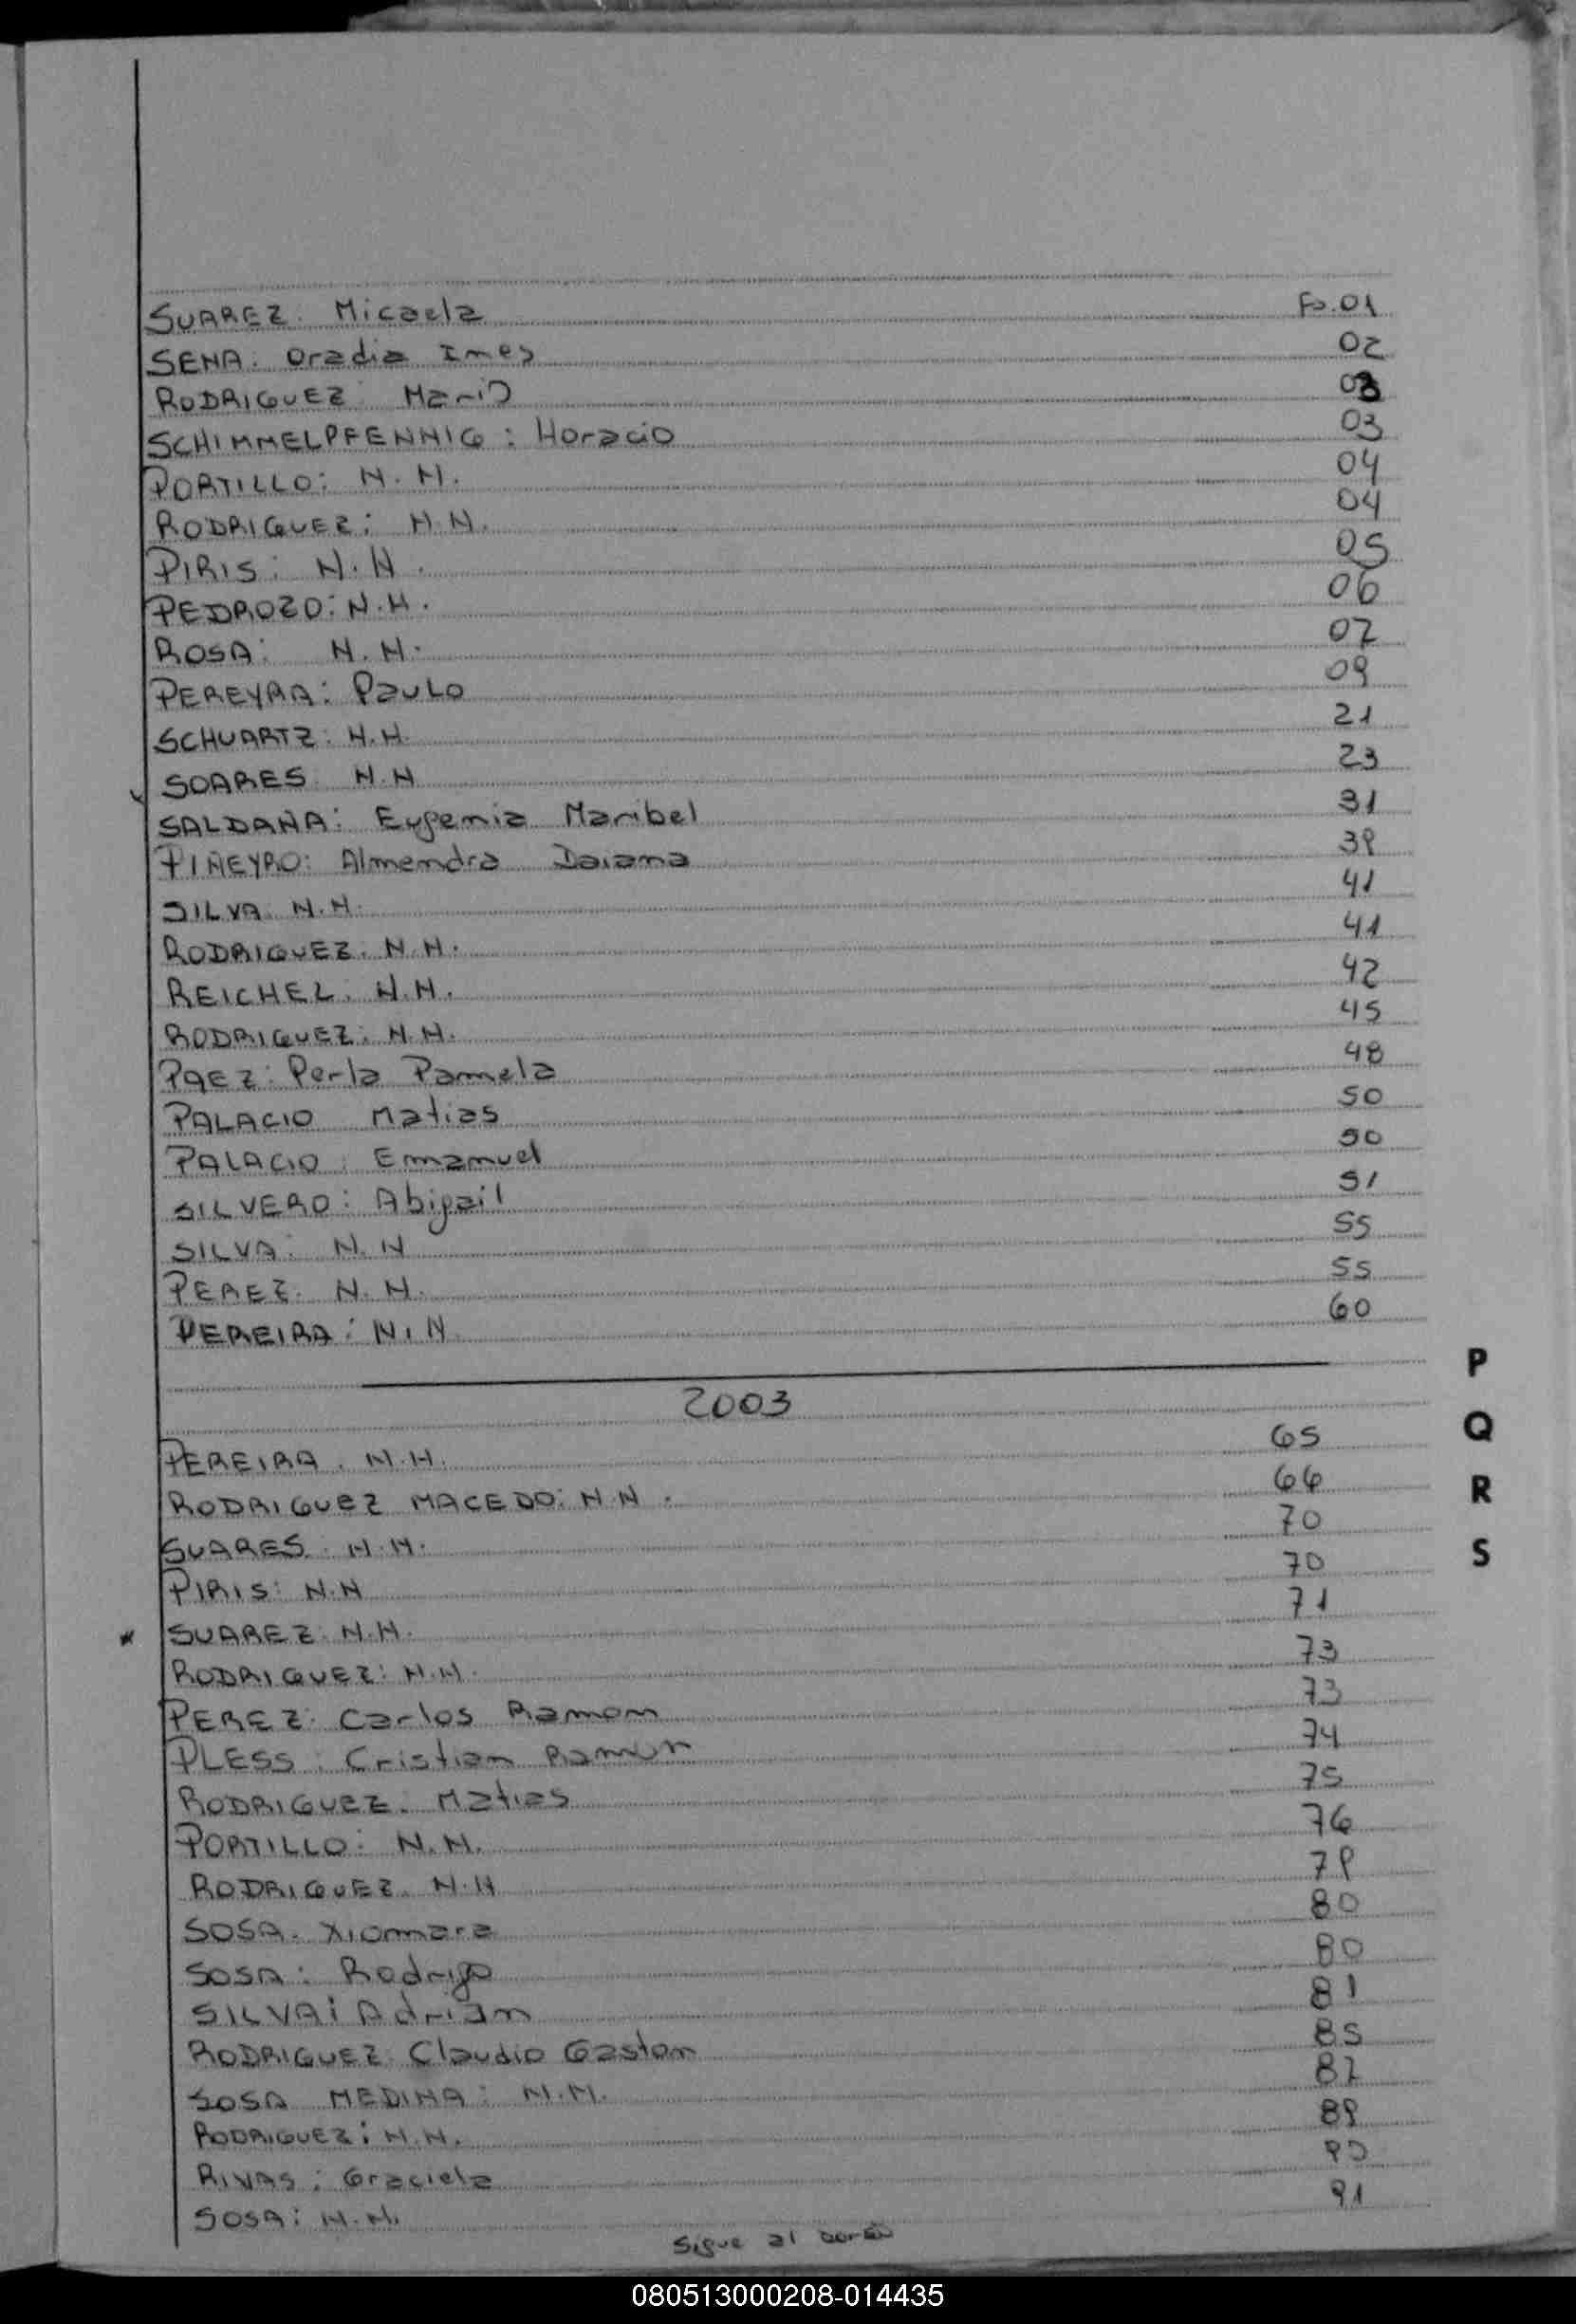 SUAREZ. Micaela Fo. 01
SENA. Oradia Ines 02
RODRIGUEZ Mario 03
SCHIMMELPFENNIG: Horacio 03
PORTILLO: N.N. 04
RODRIGUEZ: N.N. 04
PIRIS: N.N. 05
PEDROZO: N.N. 06
ROSA: N.N. 07
PEREYRA: Paulo 09
SCHUARTZ: N.N. 21
SOARES N.N 23
SALDAÑA: Eugenia Maribel 31
PIÑEYRO: Almendra Daiana 39
SILVA N.N. 41
RODRIGUEZ. N.N. 41
REICHEL. N.N. 42
RODRIGUEZ: N.N. 45
PAEZ: Perla Pamela 48
PALACIO Matias 50
PALACIO: Emanuel 50
SILVERO: Abigail 51
SILVA: N.N 55
PEREZ. N.N. 55
PEREIRA: N.N. 60
2003
PEREIRA. N.N. 65
RODRIGUEZ MACEDO: N.N. 66
SUARES. N.N. 70
PIRIS: N.N 70
SUAREZ: N.N. 71
RODRIGUEZ: N.N. 73
PEREZ: Carlos Ramon 73
PLESS: Cristian Ramon 74
RODRIGUEZ. Matias 75
PORTILLO: N.N. 76
RODRIGUEZ. N.N 79
SOSA. Xiomara 80
SOSA: Rodrigo 80
SILVA: Adrian 81
RODRIGUEZ: Claudio Gaston 85
SOSA MEDINA: N.N. 87
RODRIGUEZ: N.N. 89
RIVAS: Graciela 90
SOSA: N.N. 91
Sigue al dorso
P
Q
R
S
080513000208-014435